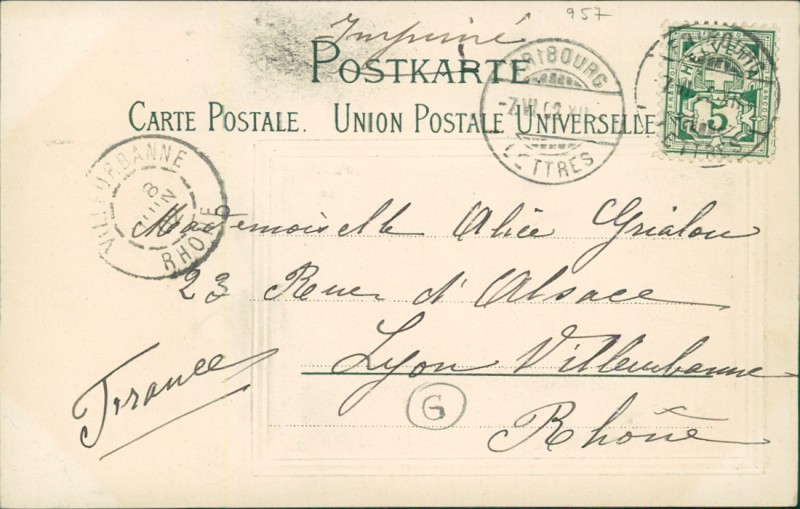 957
Imprimé
POSTKARTE
CARTE POSTALE. UNION POSTALE UNIVERSELLE
FRIBOURG
-7.VI.02.XII
LETTRES
HELVETIA
5
VILLEURBANNE
8
JUIN
02
RHONE
Mademoiselle Alice Grialou
23 Rue d'Alsace
Lyon Villeurbanne
France
G
Rhône